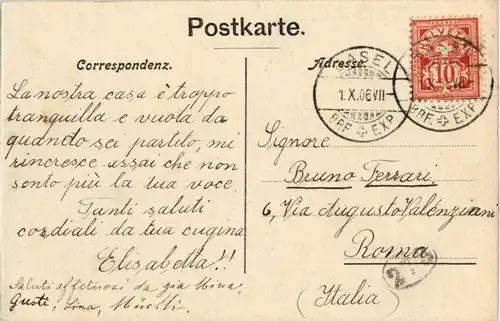 Postkarte.
Correspondenz.
La nostra casa è troppo
tranquilla e vuota da
quando sei partito, mi
rincresce assai che non
sento più la tua voce.
Tanti saluti
cordiali da tua cugina
Elisabetta!!
Saluti affetuosi da zia Mina,
Gusti, Lina,
Adresse.
HELVETIA
10
BASEL
1.X.06 VII
BRF. EXP.
BRF. EXP.
Signore
Bruno Ferrari.
6, Via Augusto Valénziani
Roma
(Italia)